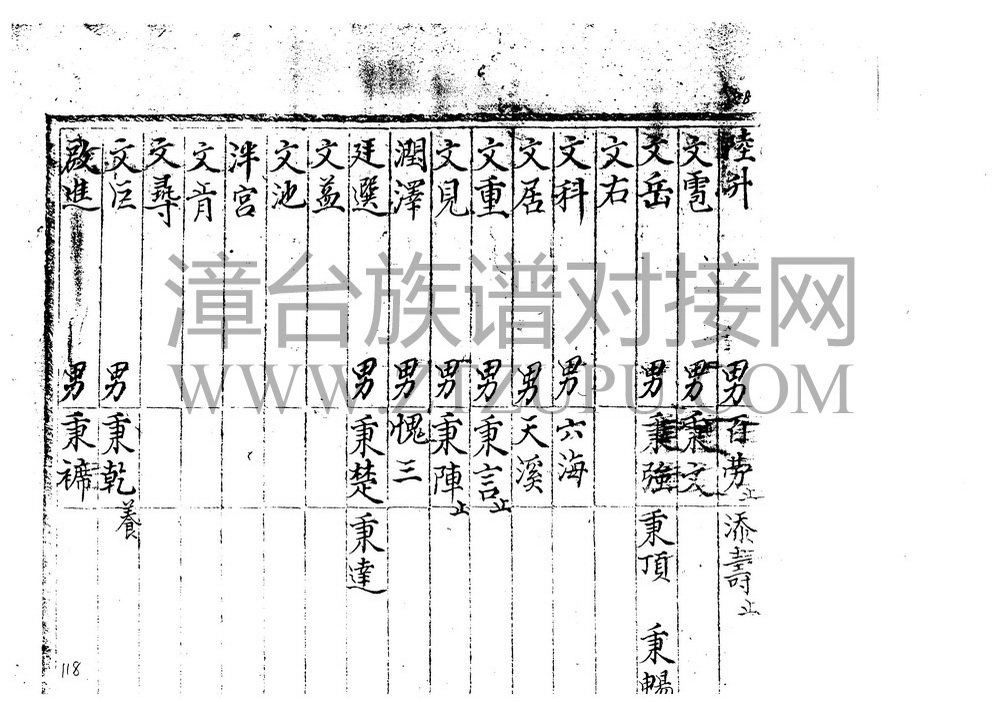 陸升 男百勞止 添壽止
文雹 男秉文
文岳 男秉強 秉頂 秉暢
文右
文科 男六海
文居 男天溪
文重 男秉言止
文見 男秉陣止
潤澤 男愧三
廷選 男秉楚 秉達
文益
文池
泮宮
文肯
文尋
文巨 男秉乾養
啟進 男秉褅
118
漳台族谱对接网
WWW.ZTZUPU.COM